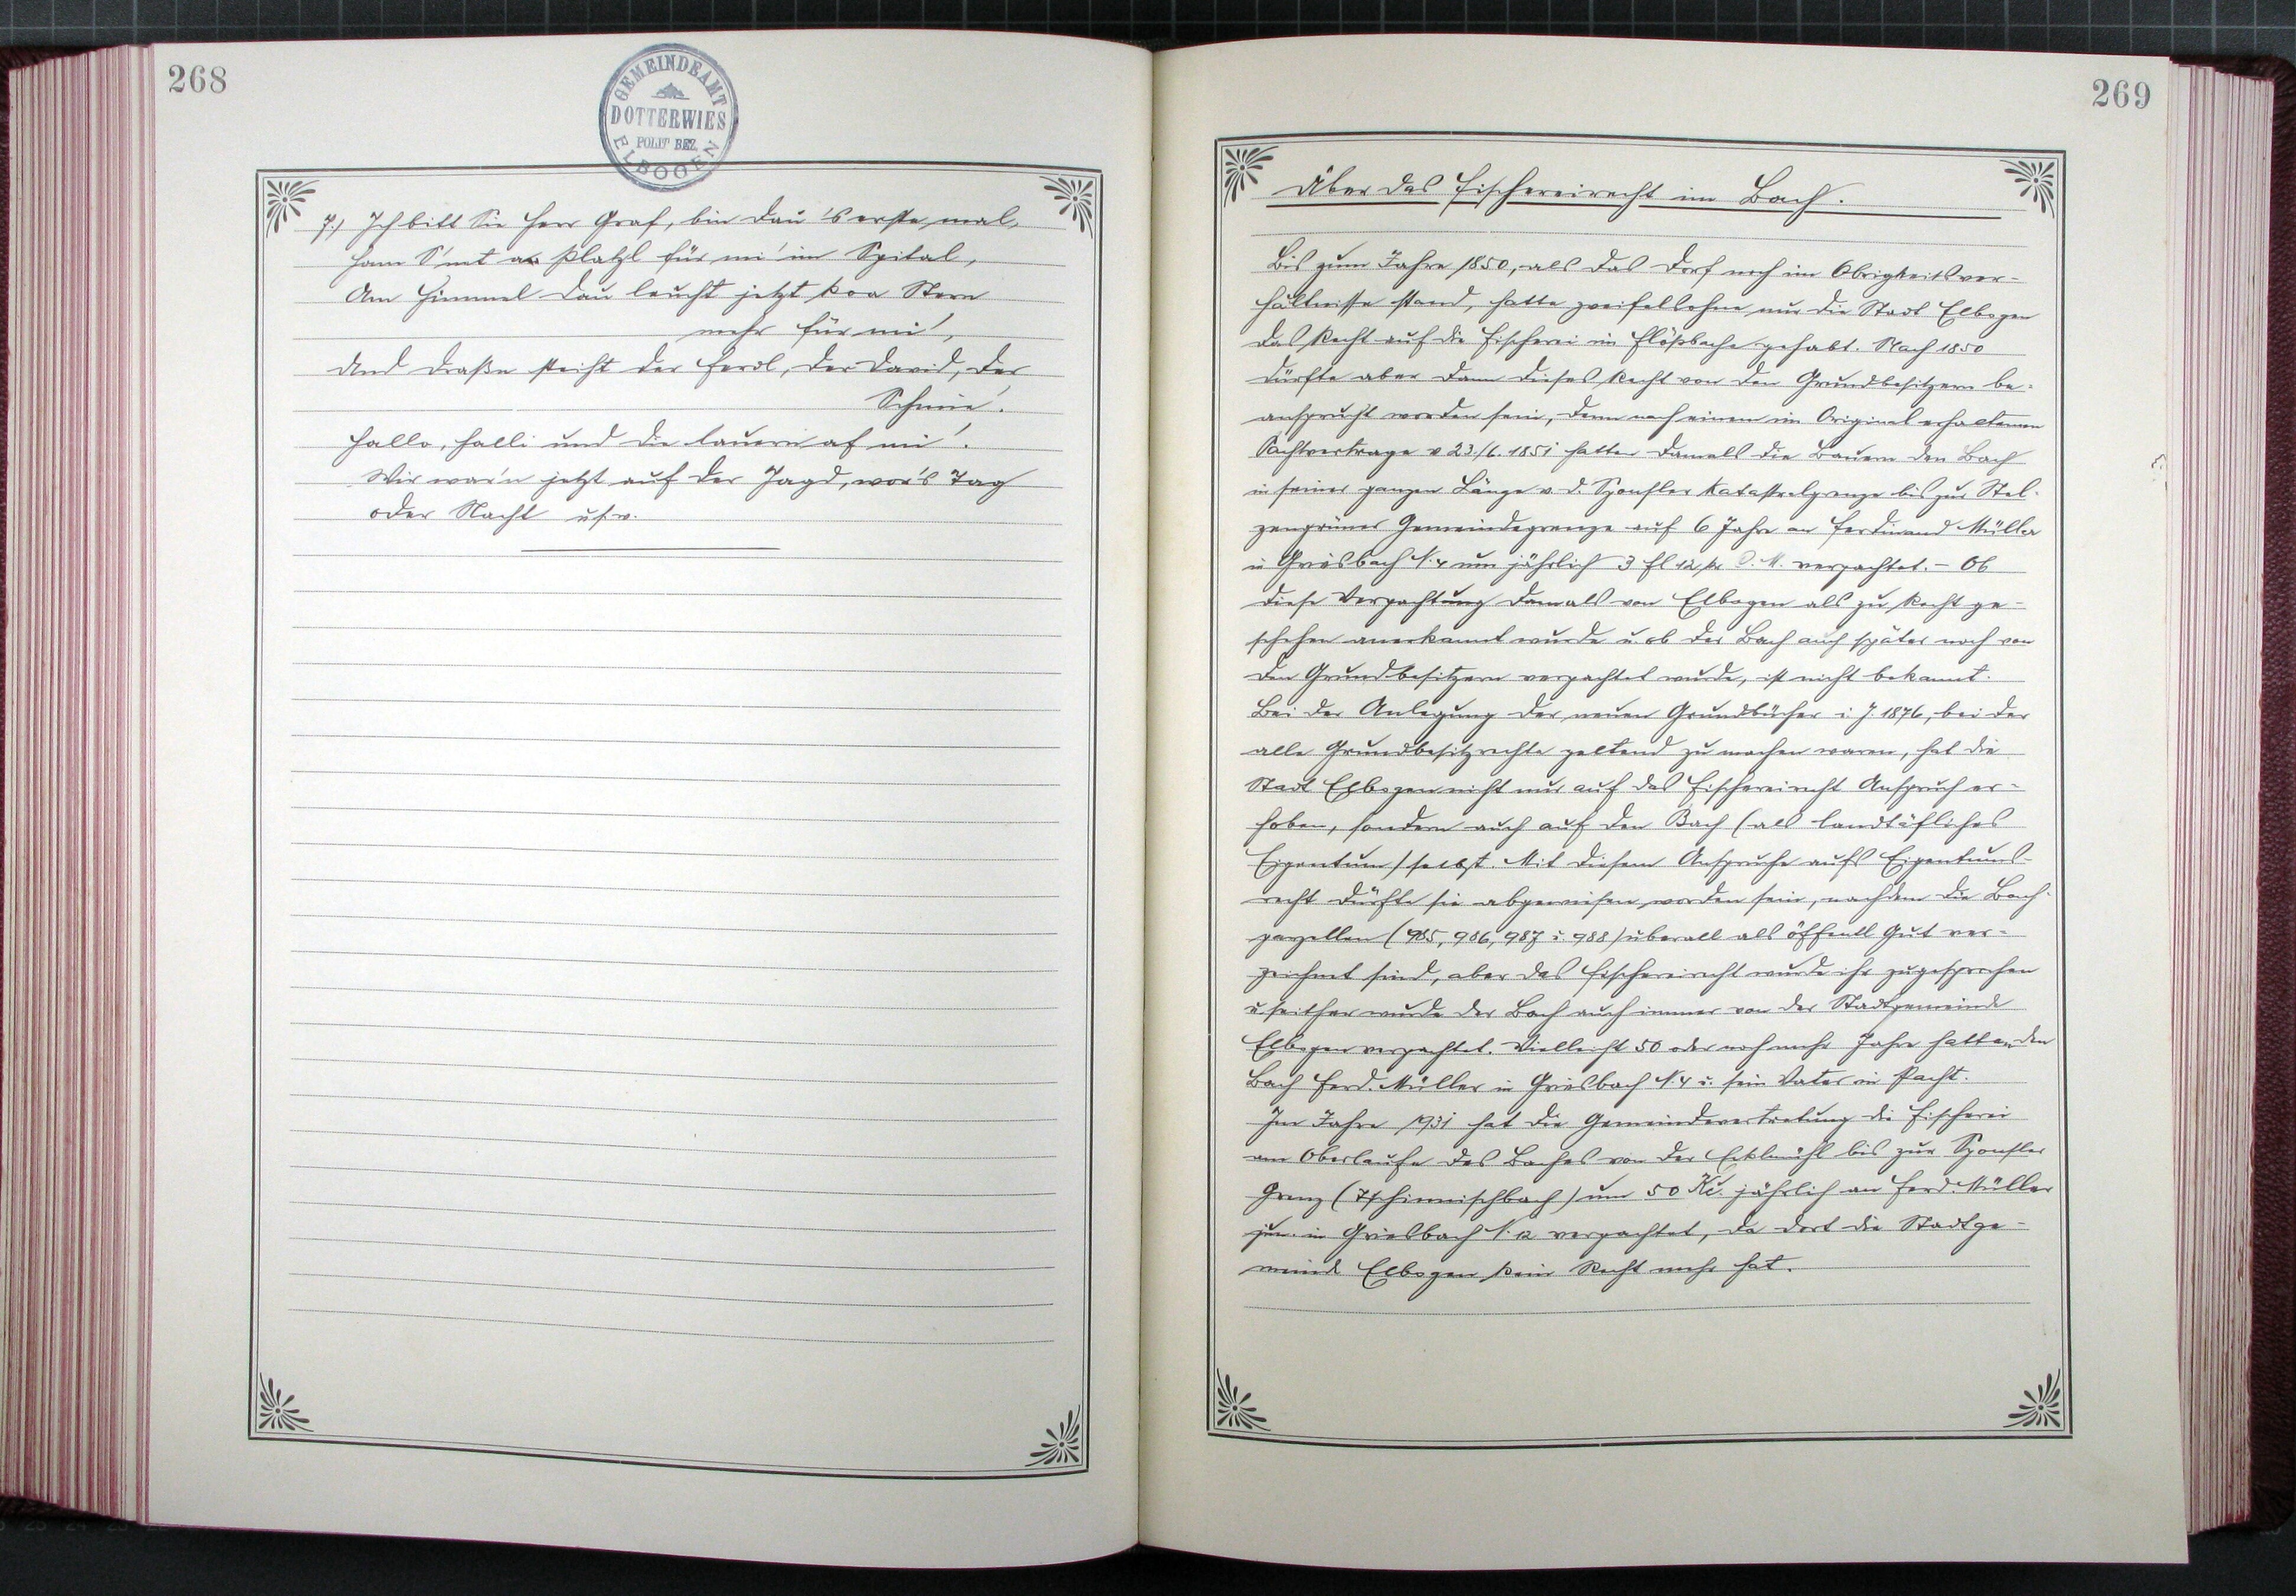 268
GEMEINDEAMT
DOTTERWIES
POLIT. BEZ.
ELBOGEN
7.) Ich bitt Sie Herr Graf, bin dau 's erste mal,
hann S' net a Platzl für mi' im Spital,
Am Himmel dau leucht jetzt koa Stern
mehr für mi',
Und draßn steiht der Ferdl, der David, der
Schmie'.
Hallo, halli und die lauern af mi'.
Wir war'n jetzt auf der Jagd, wor's Tag
oder Nacht usw.
269
Über das Fischereirecht im Bach.
Bis zum Jahre 1850, als das Dorf noch im Obrigkeitsver-
hältnisse stand, hatte zweifellohne nur die Stadt Elbogen
das Recht auf die Fischerei im Flößbache gehabt. Nach 1850
dürfte aber dann dieses Recht von den Grundbesitzern be-
ansprucht worden sein, denn nach einem im Original erhaltenen
Pachtvertrage v 23./6. 1851 hatten damals die Bauern den Bach
in seiner ganzen Länge v. d. Sponsler Katastralgrenze bis zur Stel-
zengrüner Gemeindegrenze auf 6 Jahre an Ferdinand Müller
in Griesbach N. 4 um jährlich 3 fl 12 kr C. M. verpachtet. – Ob
diese Verpachtung damals von Elbogen als zu Recht ge-
schehen anerkannt wurde u. ob der Bach auch später noch von
den Grundbesitzern verpachtet wurde, ist nicht bekannt.
Bei der Anlegung der neuen Grundbücher i. J. 1876, bei der
alle Grundbesitzrechte geltend zu machen waren, hat die
Stadt Elbogen nicht nur auf das Fischereirecht Anspruch er-
hoben, sondern auch auf den Bach (als landtäfliches
Eigentum) selbst. Mit diesem Anspruche aufs Eigentums-
recht dürfte sie abgewiesen worden sein, nachdem die Bach-
parzellen (985, 986, 987 u. 988) überall als öffentl Gut ver-
zeichnet sind, aber das Fischereirecht wurde ihr zugesprochen
u. seither wurde der Bach auch immer von der Stadtgemeinde
Elbogen verpachtet. Vielleicht 50 oder noch mehr Jahre hatten den
Bach Ferd. Müller in Griesbach N. 4 u. sein Vater in Pacht.
Im Jahre 1931 hat die Gemeindevertretung die Fischerei
am Oberlaufe des Baches von der bis zur Sponsler
Grenz (Zschinnischbach) um 50 Kč. jährlich an Ferd. Müller
jun. in Griesbach N. 12 verpachtet, da dort die Stadtge-
meinde Elbogen kein Recht mehr hat.